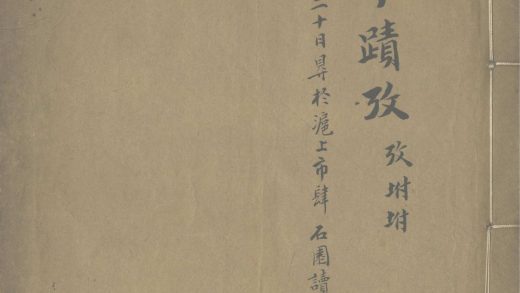 蹟攷
攷坿坿
二十日㝵於滬上市肆 石園讀